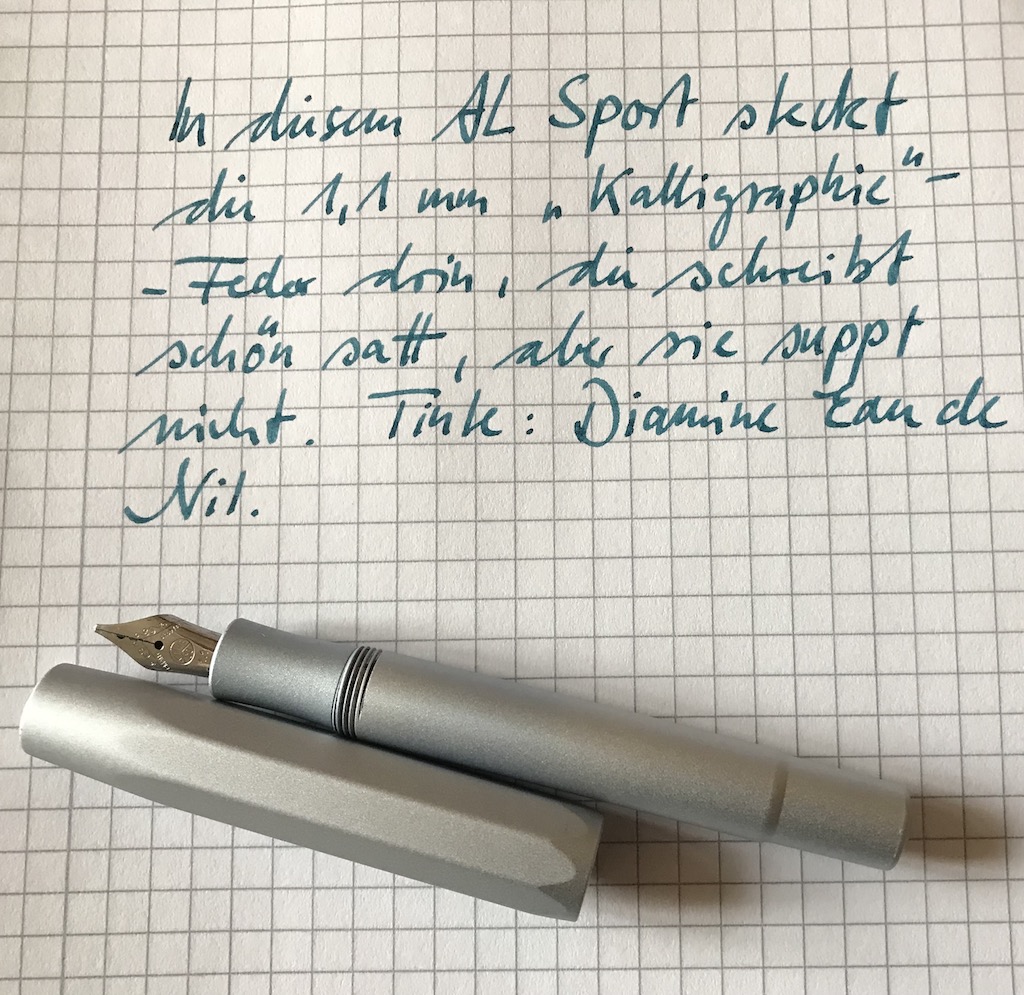 In diesem AL Sport steckt
die 1,1 mm „Kalligraphie“-
-Feder drin, die schreibt
schön satt, aber sie suppt
nicht. Tinte: Diamine Eau de
Nil.